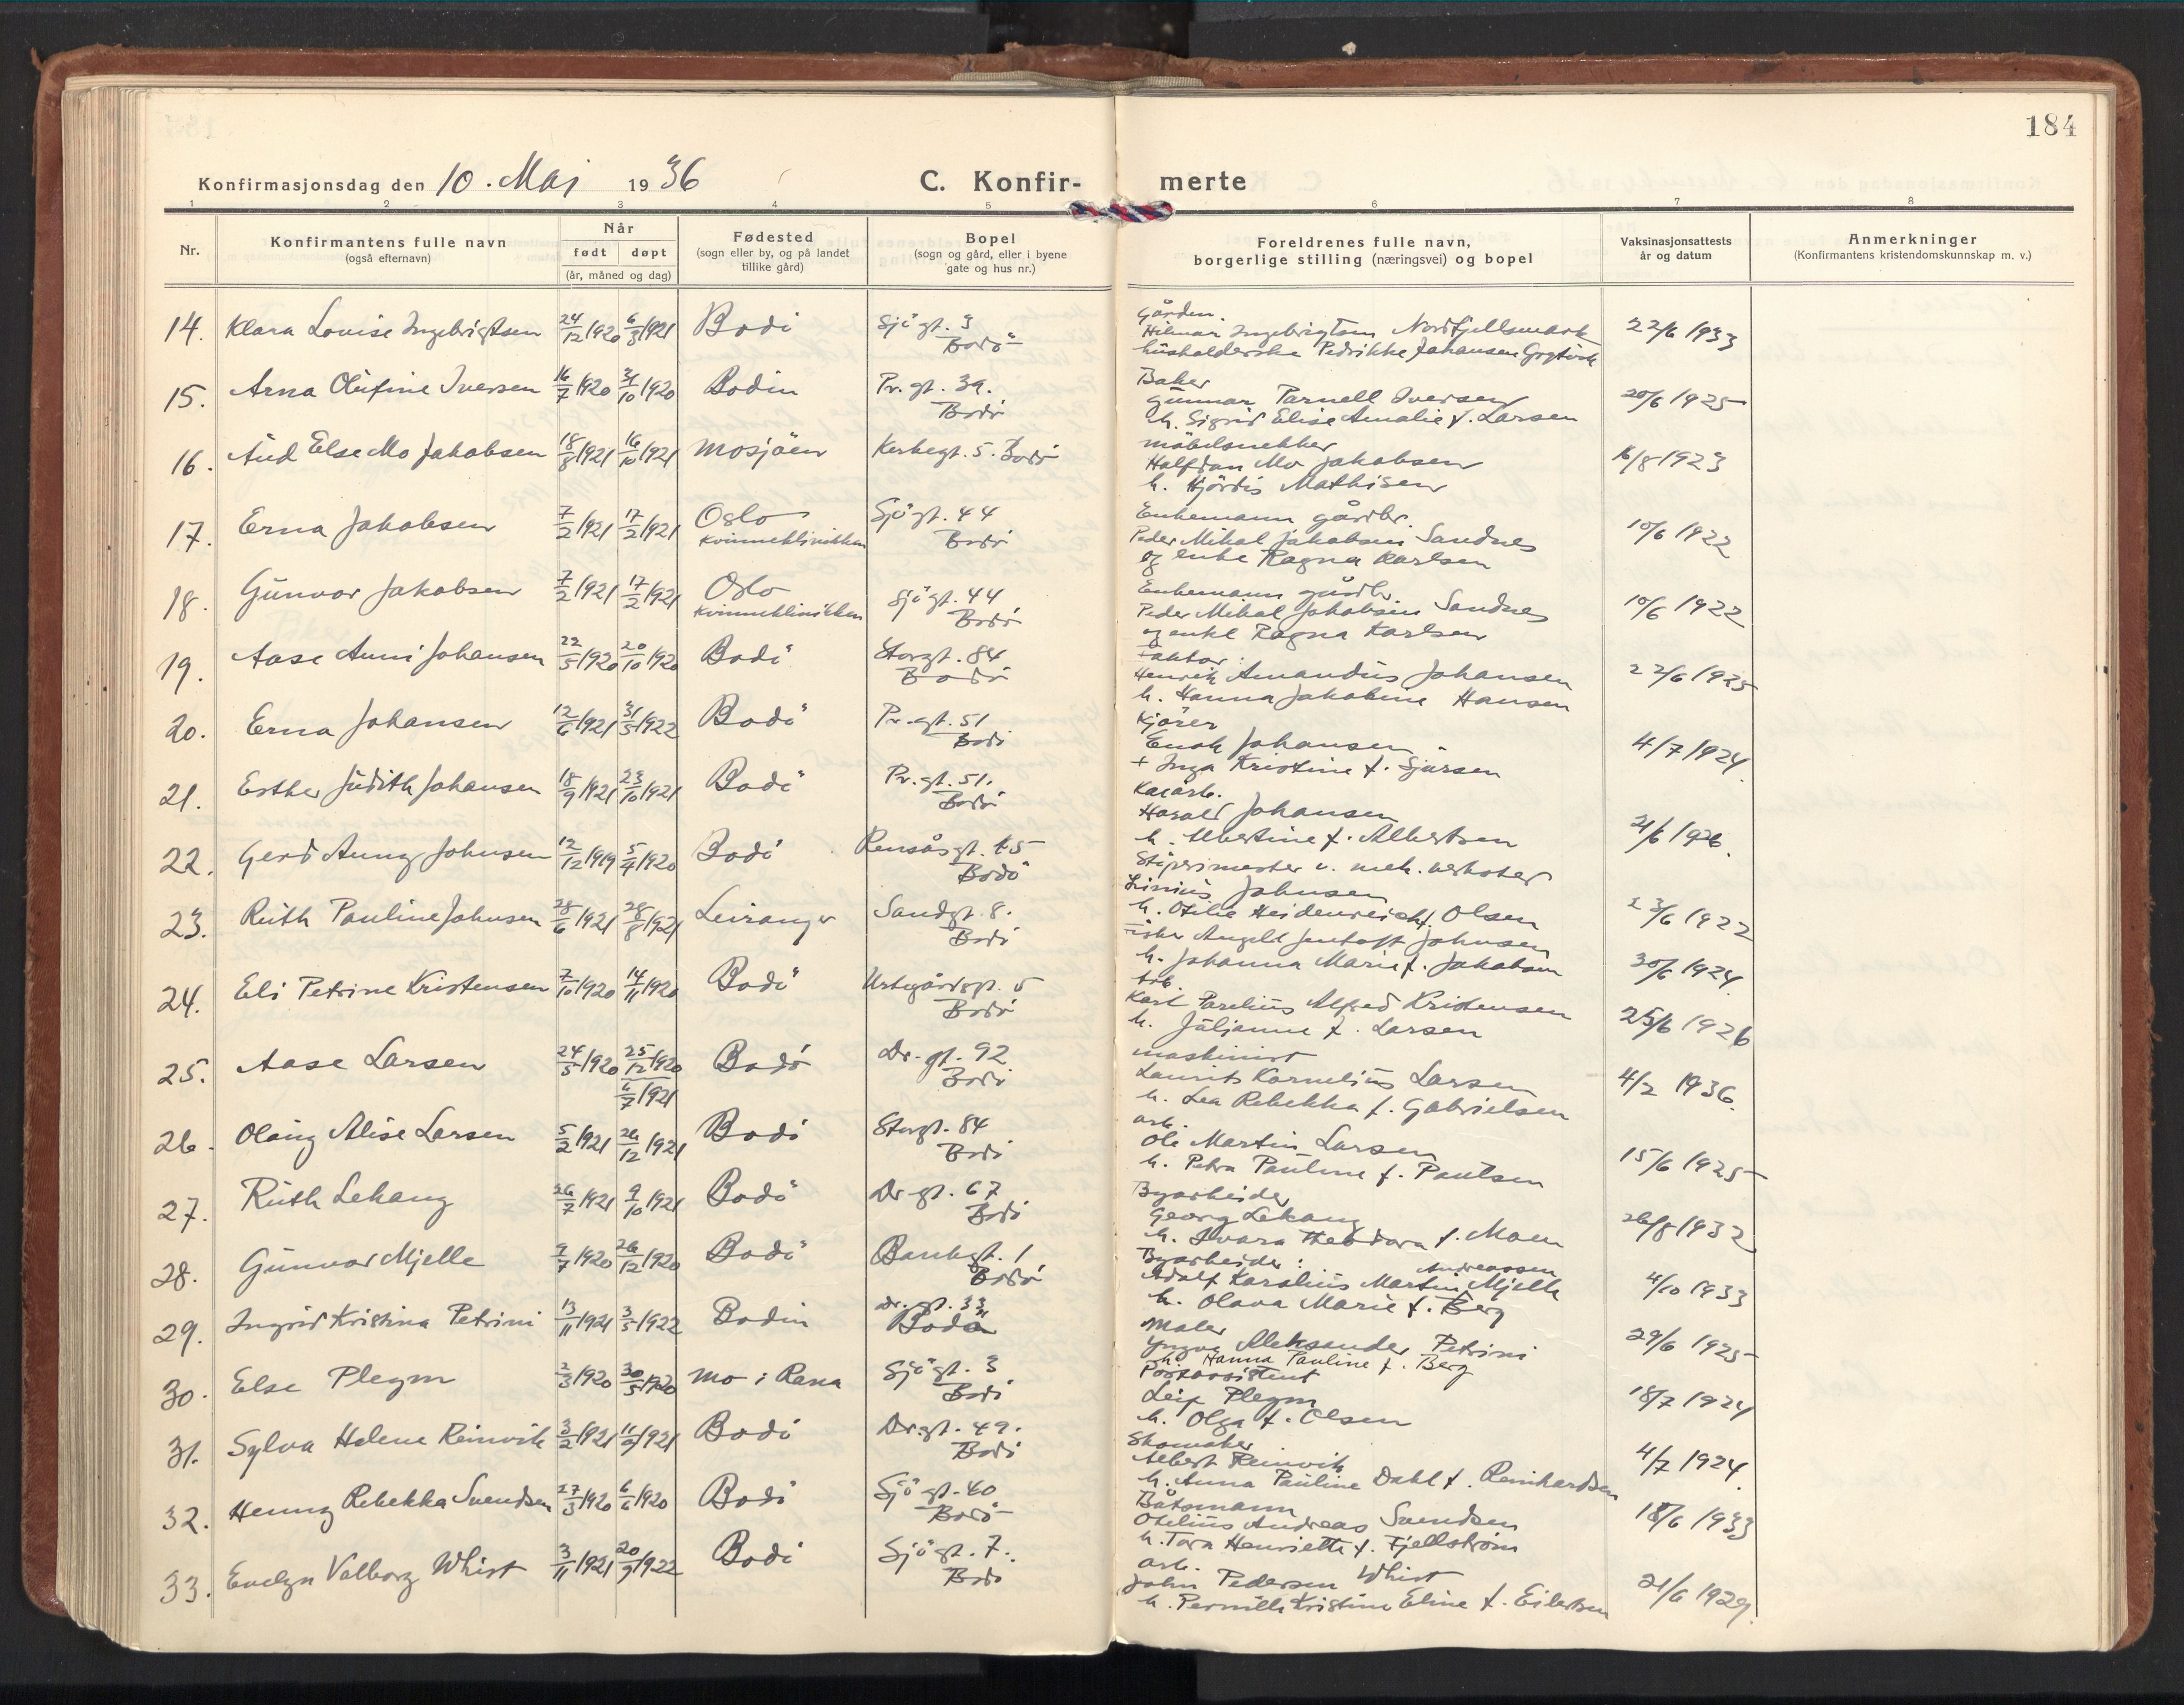 184
Konfirmasjonsdag den 10. Mai 1936 C. Konfir- merte
1 2 3 4 5 6 7 8
Nr.
Konfirmantens fulle navn
(også efternavn)
Når
født døpt
(år, måned og dag)
Fødested
(sogn eller by, og på landet
tillike gård)
Bopel
(sogn og gård, eller i byene
gate og hus nr.)
Foreldrenes fulle navn,
borgerlige stilling (næringsvei) og bopel
Vaksinasjonsattests
år og datum
Anmerkninger
(Konfirmantens kristendomskunnskap m. v.)
14. Klara Lovise Ingebrigtsen 24/12 1920 6/3 1921 Bodö Sjögt. 3 Bodö
Hilmar Ingebrigtsen Nordfjellmark
husholderske Pedrikke Johansen
22/6 1933
15. Arna Olufine Iversen 16/7 1920 31/10 1920 Bodin Pr. gt. 39. Bodö
Baker
Gunnar Parnell Iversen
h. Sigrid Elise Amalie f. Larsen
20/6 1925
16. Aud Else Mo Jakobsen 18/8 1921 16/10 1921 Mosjöen Kirkegt. 5. Bodö
Möbelsnekker
Halfdan Mo Jakobsen
h. Hjördis Mathisen
16/8 1923
17. Erna Jakobsen 7/2 1921 17/2 1921 Oslo Kvinneklinikken Sjögt. 44 Bodö
Enkemann gårdbr.
Peder Mikal Jakobsen Sandnes
og enke Ragna Karlsen
10/6 1922
18. Gunvor Jakobsen 7/2 1921 17/2 1921 Oslo Kvinneklinikken Sjögt. 44 Bodö
Enkemann gårdbr.
Peder Mikal Jakobsen Sandnes
og enke Ragna Karlsen
10/6 1922
19. Aase Anni Johansen 22/5 1920 20/10 1920 Bodö Storgt. 84 Bodö
Faktor:
Henrik Amandus Johansen
h. Hanna Jakobine Hansen
22/6 1925
20. Erna Johansen 12/6 1921 31/5 1922 Bodö Pr. gt. 51 Bodö
Kjörer
Enok Johansen
+ Inga Kristine f. Sjursen
4/7 1924.
21. Esther Judith Johansen 18/9 1921 23/10 1921 Bodö Pr. gt. 51. Bodö
Kaiarb.
Harald Johansen
h. Albertine f. Albertsen
21/6 1926.
22. Gerd Aung Johnsen 12/12 1919 5/4 1920 Bodö Rensåsgt. 45 Bodö
Stöperimester v. mek. verksted
Linius Johnsen
h. Otilie Heidenreich f. Olsen
23/6 1922
23. Ruth Pauline Johnsen 28/6 1921 28/8 1921 Leiranger Sandgt. 8. Bodö
Angell Jentoft Johnsen
h. Johanna Marie f. Jakobsen
30/6 1924.
24. Eli Petrine Kristensen 7/10 1920 14/11 1920 Bodö Urtegårdsgt. 5 Bodö
Karl Parelius Alfred Kristensen
h. Juljanne f. Larsen
25/6 1926
25. Aase Larsen 24/5 1920 25/12 1920 Bodö Dr. gt. 92 Bodö
Maskinist
Laurits Kornelius Larsen
h. Lea Rebekka f. Gabrielsen
4/2 1936.
26. Olaug Alise Larsen 5/2 1921 26/12 1921 Bodö Storgt. 84 Bodö
arb.
Ole Martin Larsen
h. Petra Pauline f. Paulsen
15/6 1925
27. Ruth Lekang 26/7 1921 9/10 1921 Bodö Dr. gt. 67 Bodö
Byarbeider
Georg Lekang
h. Svara Theodora f. Moen
26/8 1932
28. Gunvor Mjelle 9/7 1920 26/12 1920 Bodö Bankgt. 1 Bodö
Byarbeider:
Adolf Karelius Martin Andreassen Mjelle
h. Olava Marie f. Berg
4/10 1933
29. Ingrid Kristina Petrini 13/11 1921 3/5 1922 Bodin Dr. gt. 33 Bodö
Maler
Yngve Aleksander Petrini
h. Hanna Pauline f. Berg
29/6 1925
30. Else Pleym 2/3 1920 30/5 1920 Mo i Rana Sjögt. 3 Bodö
Postassistent
Leif Pleym
h. Olga f. Olsen
18/7 1924
31. Sylva Helene Reinvik 3/2 1921 11/9 1921 Bodö Dr. gt. 49. Bodö
Skomaker
Albert Reinvik
h. Anna Pauline Dahl f. Reinhardsen
4/7 1924.
32. Henny Rebekka Svendsen 27/3 1920 6/6 1920 Bodö Sjögt. 40 Bodö
Båtsmann
Otelius Andreas Svendsen
h. Tora Henriette f. Fjellström
18/6 1933
33. Evelyn Valborg Whist 3/11 1921 20/9 1922 Bodö Sjögt. 7. Bodö
arb.
John Pedersen Whist
h. Pernille Kristine Eline f. Eilertsen
21/6 1929.